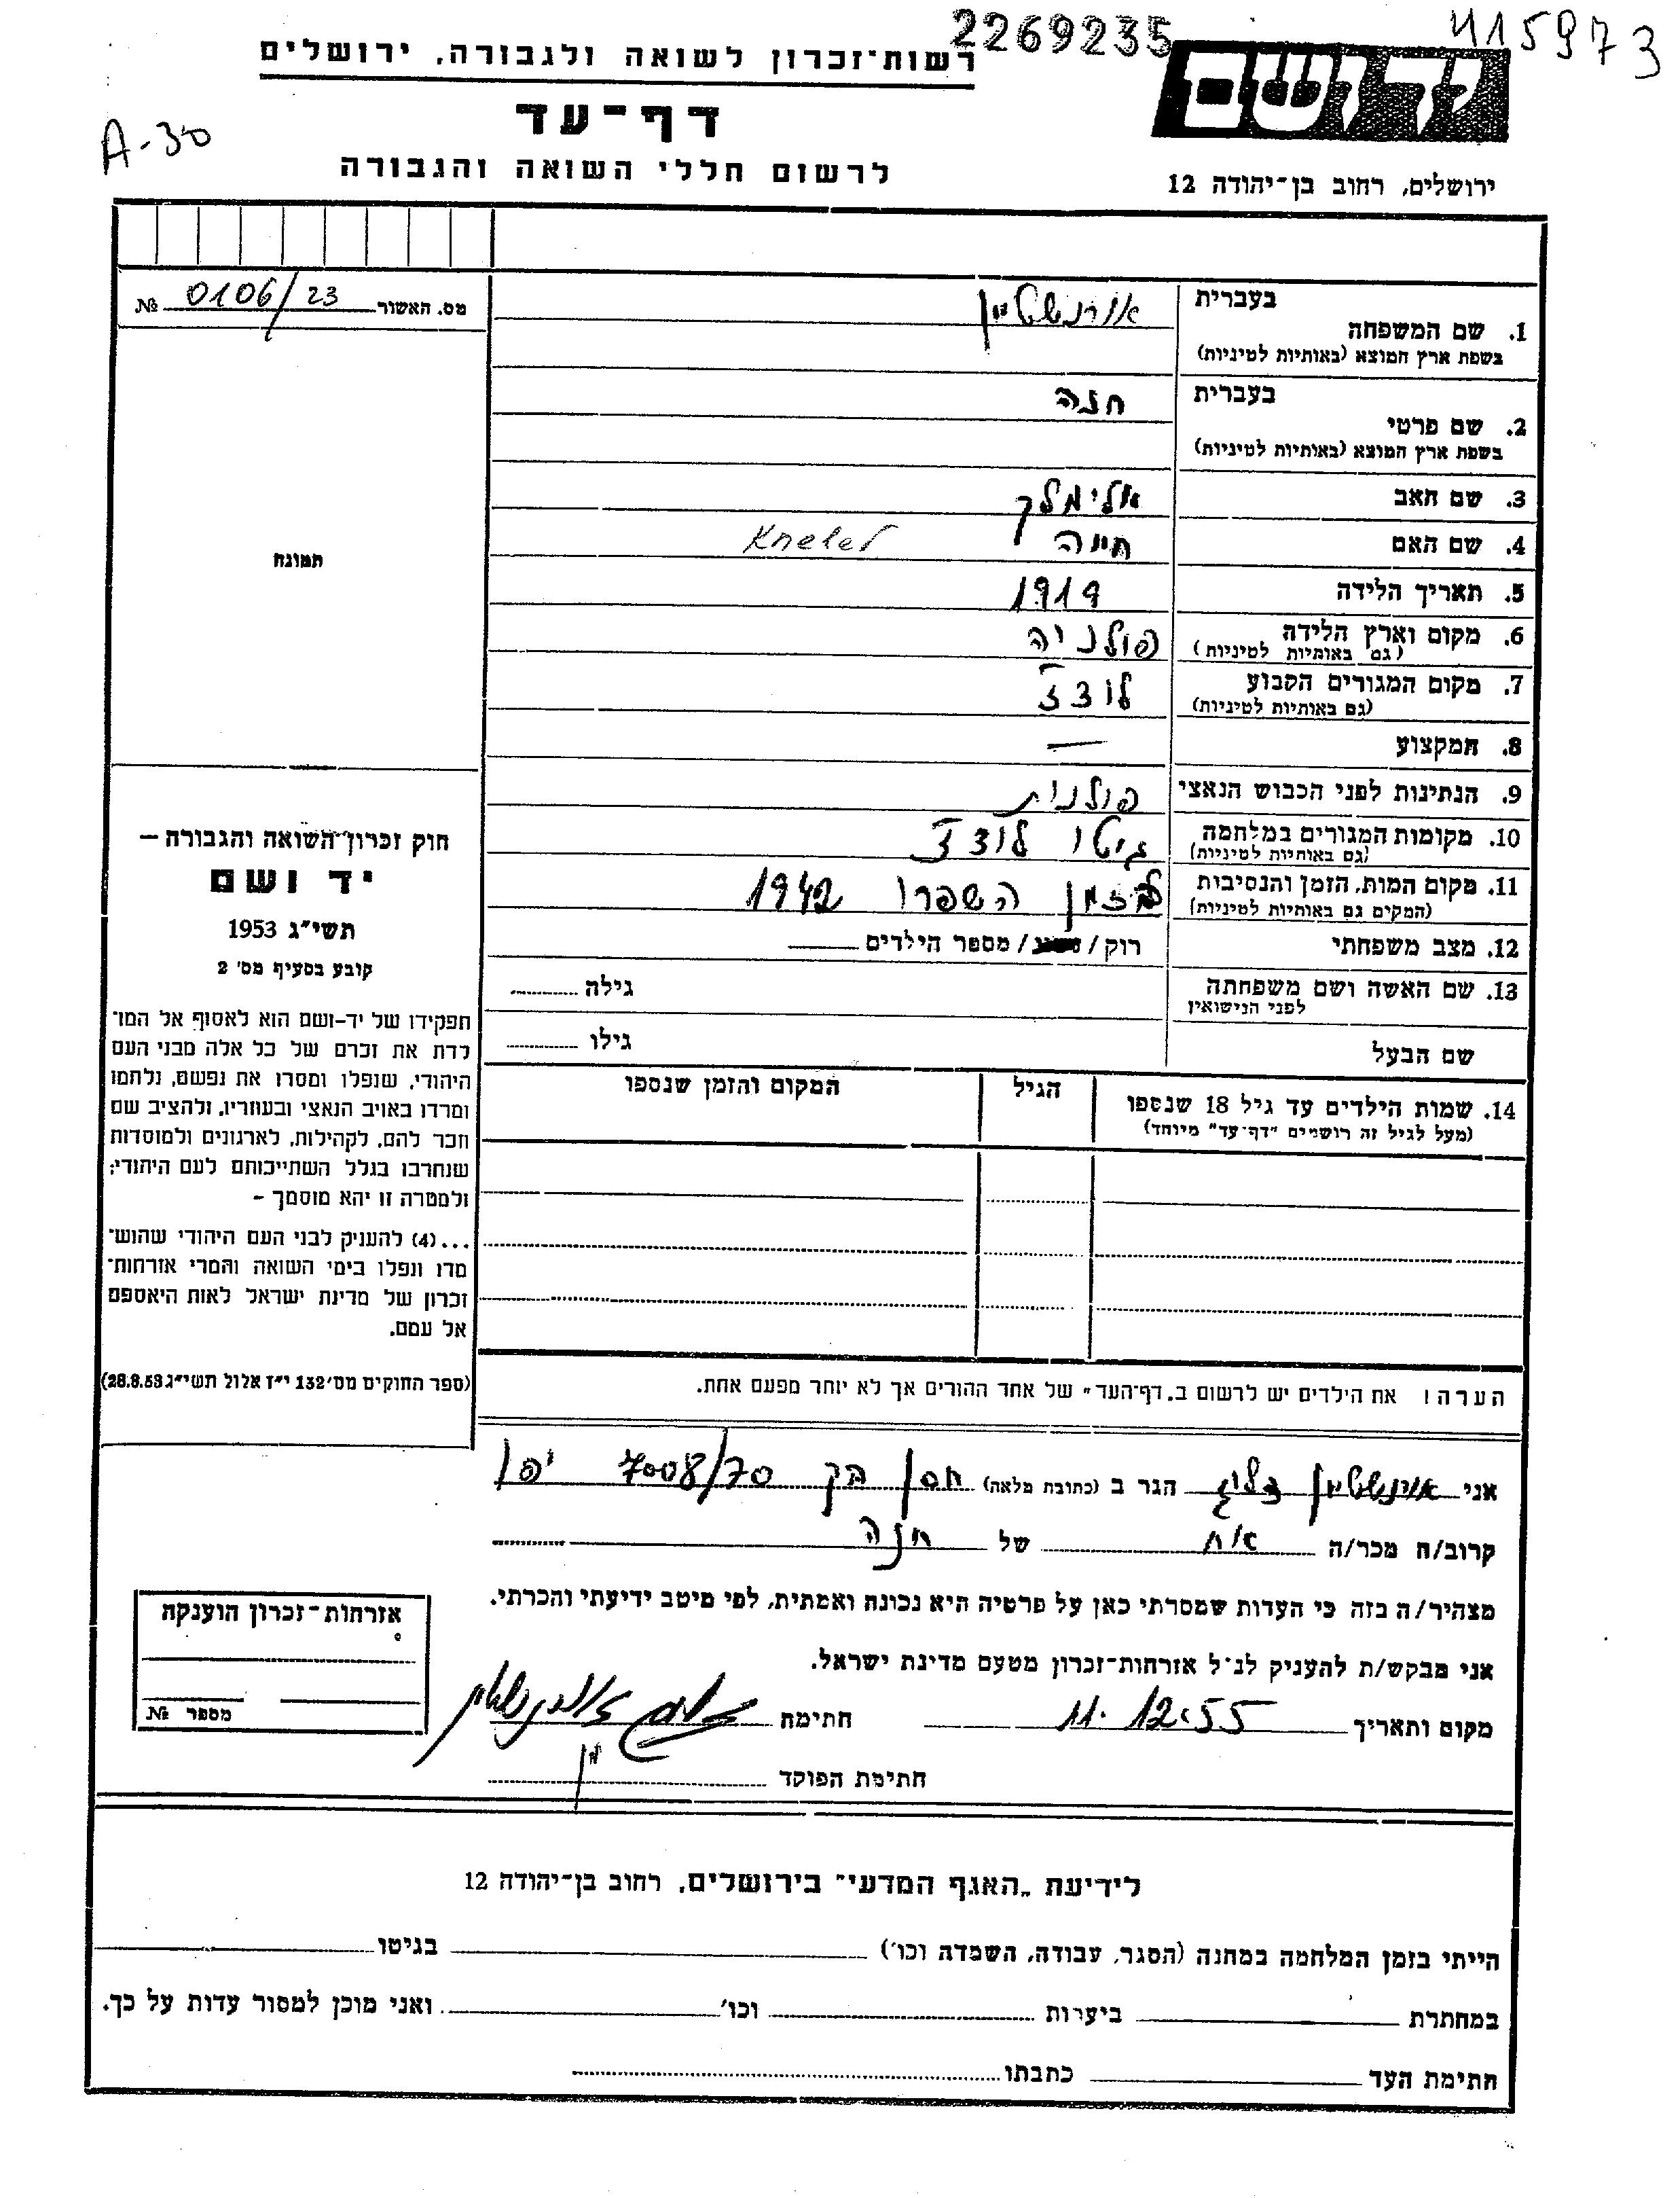 2269235
415973
רשות־זכרון לשואה ולגבורה, ירושלים
יד ושם
דף־עד
A-30
לרשום חללי השואה והגבורה
ירושלים, רחוב בן־יהודה 12
מס. האשור 0106/23 №
בעברית
1. שם המשפחה
בשפת ארץ המוצא (באותיות לטיניות)
בעברית חנה
2. שם פרטי
בשפת ארץ המוצא (באותיות לטיניות)
3. שם האב אלימלך
4. שם האם חיה
5. תאריך הלידה 1919
6. מקום וארץ הלידה פולניה
(גם באותיות לטיניות)
7. מקום המגורים הקבוע לודז
(גם באותיות לטיניות)
8. המקצוע —
9. הנתינות לפני הכבוש הנאצי פולנית
10. מקומות המגורים במלחמה גיטו לודז
(גם באותיות לטיניות)
11. מקום המות, הזמן והנסיבות בזמן השפרו 1942
(המקום גם באותיות לטיניות)
12. מצב משפחתי רוק/ /מספר הילדים
13. שם האשה ושם משפחתה גילה
לפני הנישואין
שם הבעל גילו
14. שמות הילדים עד גיל 18 שנספו הגיל המקום והזמן שנספו
(מעל לגיל זה רושמים "דף־עד" מיוחד)
תמונה
חוק זכרון־השואה והגבורה –
יד ושם
תשי"ג 1953
קובע בסעיף מס' 2
תפקידו של יד-ושם הוא לאסוף אל המו־
לדת את זכרם של כל אלה מבני העם
היהודי, שנפלו ומסרו את נפשם, נלחמו
ומרדו באויב הנאצי ובעוזריו, ולהציב שם
וזכר להם, לקהילות, לארגונים ולמוסדות
שנחרבו בגלל השתייכותם לעם היהודי;
ולמטרה זו יהא מוסמך -
...(4) להעניק לבני העם היהודי שהוש־
מדו ונפלו בימי השואה והמרי אזרחות־
זכרון של מדינת ישראל לאות היאספם
אל עמם.
(ספר החוקים מס' 132 י"ז אלול תשי"ג 28.8.53)
הערה: את הילדים יש לרשום ב„דף־העד" של אחד ההורים אך לא יותר מפעם אחת.
אני הגר ב (כתובת מלאה) חסן בק 7008/70 יפו
קרוב/ה מכר/ה אח של חנה
מצהיר/ה בזה כי העדות שמסרתי כאן על פרטיה היא נכונה ואמתית, לפי מיטב ידיעתי והכרתי.
אני מבקש/ת להעניק לנ"ל אזרחות־זכרון מטעם מדינת ישראל.
מקום ותאריך 11.12.55 חתימה
חתימת הפוקד
אזרחות־זכרון הוענקה
מספר №
לידיעת „האגף המדעי" בירושלים, רחוב בן־יהודה 12
הייתי בזמן המלחמה במחנה (הסגר, עבודה, השמדה וכו') בגיטו
במחתרת ביערות וכו' ואני מוכן למסור עדות על כך.
חתימת העד כתבתו